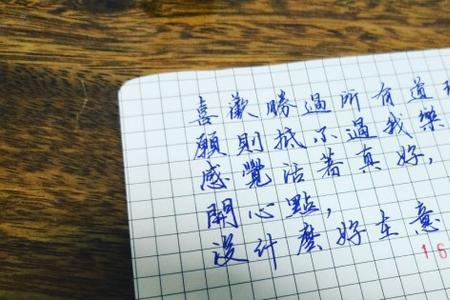 喜歡勝過所有道
願則抵不過我樂
感覺活著真好,
開心點,
沒什麼好在意
16